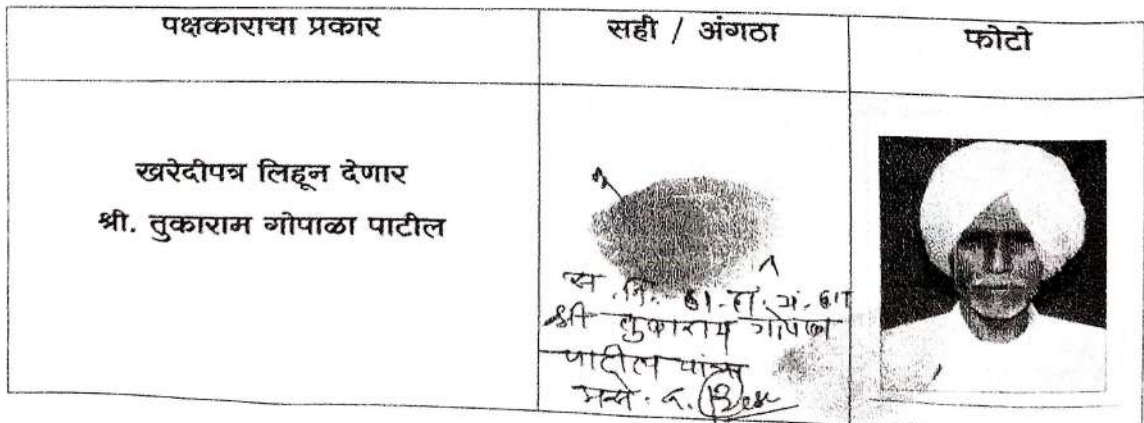 पक्षकाराचा प्रकार
सही / अंगठा
फोटो
खरेदीपत्र लिहून देणार
श्री. तुकाराम गोपाळा पाटील
श्री तुकाराम गोपाळा
पाटील यांचा